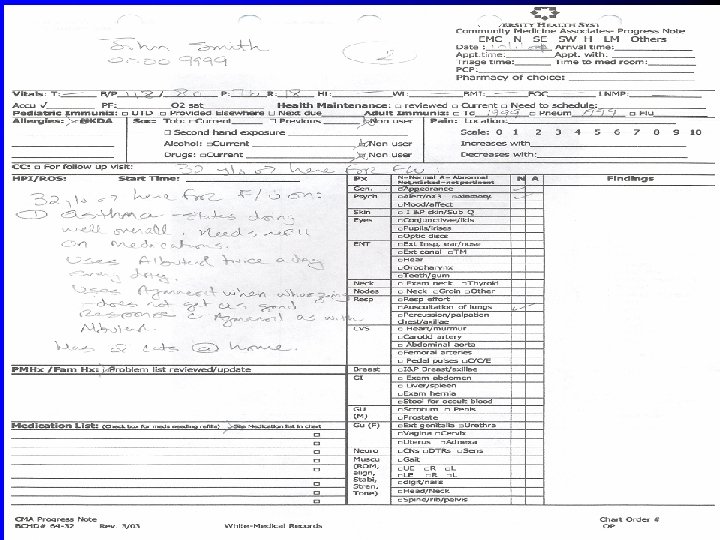 VERSITY HEALTH SYST
Community Medicine Associates Progress Note
EMC N SE SW H LM Others
John Smith
9999
2
Date : Arrival time:
Appt. time: Appt. with:
Triage time: Time to med room:
PCP:
Pharmacy of choice:
Vitals: T: B/P P: R: 18 Ht: Wt: BMI: FOC LNMP:
Accu ✓ PF: O2 sat Health Maintenance: □ reviewed □ Current □ Need to schedule:
Pediatric Immuniz: □ UTD □ Provided Elsewhere □ Next due Adult Immuniz: □ Td 1999 □ Pneum 1999 □ Flu
Allergies: NKDA Sos: Tob: □Current □ Previous Non user Pain: Location:
□ Second hand exposure Scale: 0 1 2 3 4 5 6 7 8 9 10
Alcohol: □Current Non user Increases with
Drugs: □Current Non user Decreases with:
CC: □ For follow up visit: 32 y/o ♂ here for F/U
HPI/ROS: Start Time: PX N=Normal A= Abnormal N A Findings
Not marked=not pertinent
32 y/o ♂ here for F/U on:
① asthma - states doing
well overall. Needs refill
on medications.
Uses Albuterol twice a day
every day.
Uses when
- does not get as good
Response as with
Albuterol.
Has 2 cats @ home.
Gen. □Appearance
Psych □Alert/ox3 □memory
□Mood/affect
Skin □ I &P skin/Sub Q
Eyes □Conjunctives/lids
□Pupils/irises
□Optic discs
ENT □Ext Insp, ear/nose
□Ext canal □TM
□Hear
□Oropharynx
□Teeth/gum
Neck □ Exam neck □Thyroid
Nodes □ Neck □Groin □Other
Resp □Resp effort
□Auscultation of lungs
□Percussion/palpation
chest/axillae
CVS □ Heart/murmur
□Carotid artery
□ Abdominal aorta
□Femoral arteries
□ Pedal pulses □C/C/E
PMHx /Fam Hx: Problem list reviewed/update
Breast □I&P Breast/axillae
GI □ Exam abdomen
□ Liver/spleen
□Exam hernia
□Stool for occult blood
GU □Scrotum □ Penis
(M) □Prostate
Medication List: (Check box for meds needing refills) See Medication list in chart
Gu (F) □Ext genitalia □Urethra
□Vagina □Cervix
□Uterus □Adnexa
Neuro □CNs □DTRs □Sens
Muscu □Gait
(ROM, □UE □R □L
align, □LE □R □L
Stabi, □digit/nails
Stren, □Head/Neck
Tone) □Spine/rib/pelvis
CMA Progress Note
BCHD# 64-32 Rev. 3/03 White-Medical Records
Chart Order #
OP